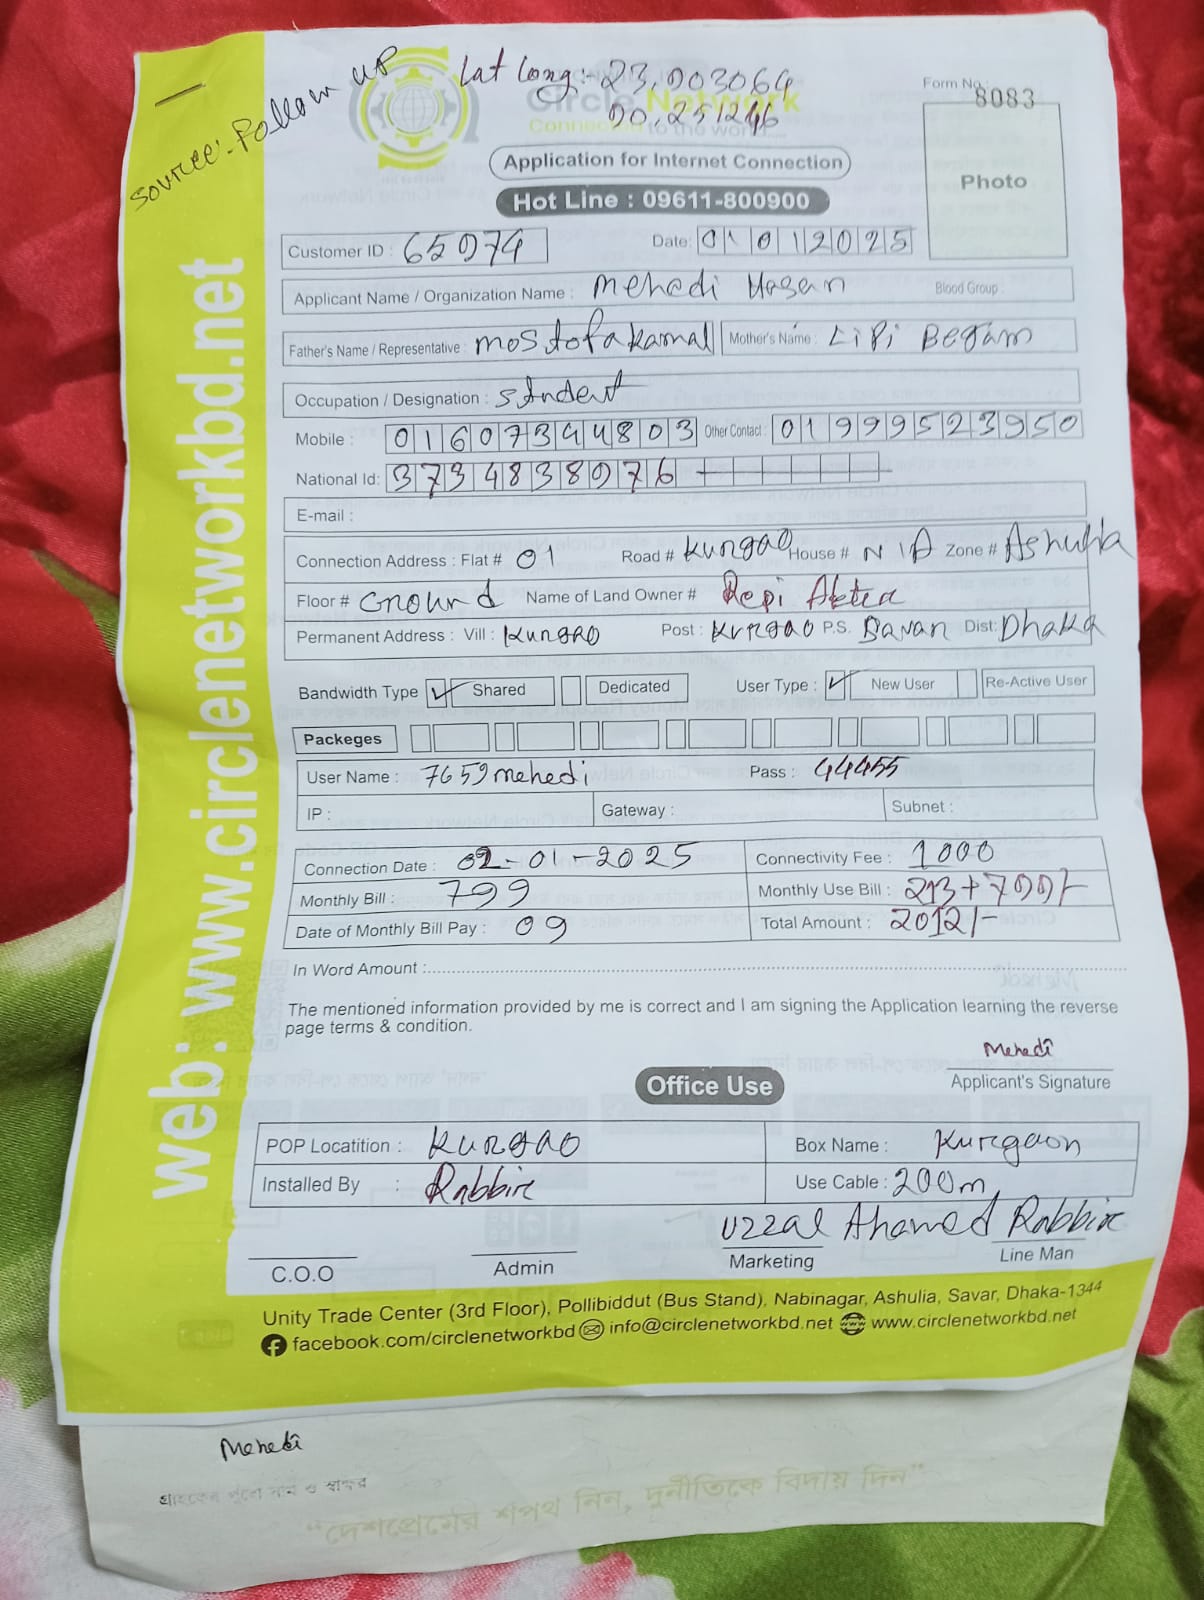 Source:- Follow UP
Lat long:- 23.903064
90.251246
Circle Network
Connected to the world...
Form No. 8083
Photo
Application for Internet Connection
Hot Line : 09611-800900
Customer ID : 65974 Date: 01012025
Applicant Name / Organization Name : Mehedi Hasan Blood Group :
Father's Name / Representative : Mostofa kamal Mother's Name : Lipi Begam
Occupation / Designation : Student
Mobile : 01607344803 Other Contact : 01999523950
National Id: 3734838976
E-mail :
Connection Address : Flat # 01 Road # Kurgao House # N/A Zone # Ashulia
Floor # Ground Name of Land Owner # Repi Akter
Permanent Address : Vill : Kurgao Post : Kurgao P.S. Savar Dist: Dhaka
Bandwidth Type ✓ Shared Dedicated User Type : ✓ New User Re-Active User
Packeges
User Name : 7659mehedi Pass : 44455
IP : Gateway : Subnet :
Connection Date : 02-01-2025 Connectivity Fee : 1000
Monthly Bill : 799 Monthly Use Bill : 213+799/-
Date of Monthly Bill Pay : 09 Total Amount : 2012/-
In Word Amount :
The mentioned information provided by me is correct and I am signing the Application learning the reverse
page terms & condition.
Mehedi
Applicant's Signature
Office Use
POP Locatition : Kurgao Box Name : Kurgaon
Installed By : Rabbir Use Cable : 200m
Uzzal Ahamed Rabbir
C.O.O Admin Marketing Line Man
Unity Trade Center (3rd Floor), Pollibiddut (Bus Stand), Nabinagar, Ashulia, Savar, Dhaka-1344
facebook.com/circlenetworkbd info@circlenetworkbd.net www.circlenetworkbd.net
web: www.circlenetworkbd.net
Mehedi
গ্রাহকের পুরো নাম ও স্বাক্ষর
"দেশপ্রেমের শপথ নিন, দুর্নীতিকে বিদায় দিন"